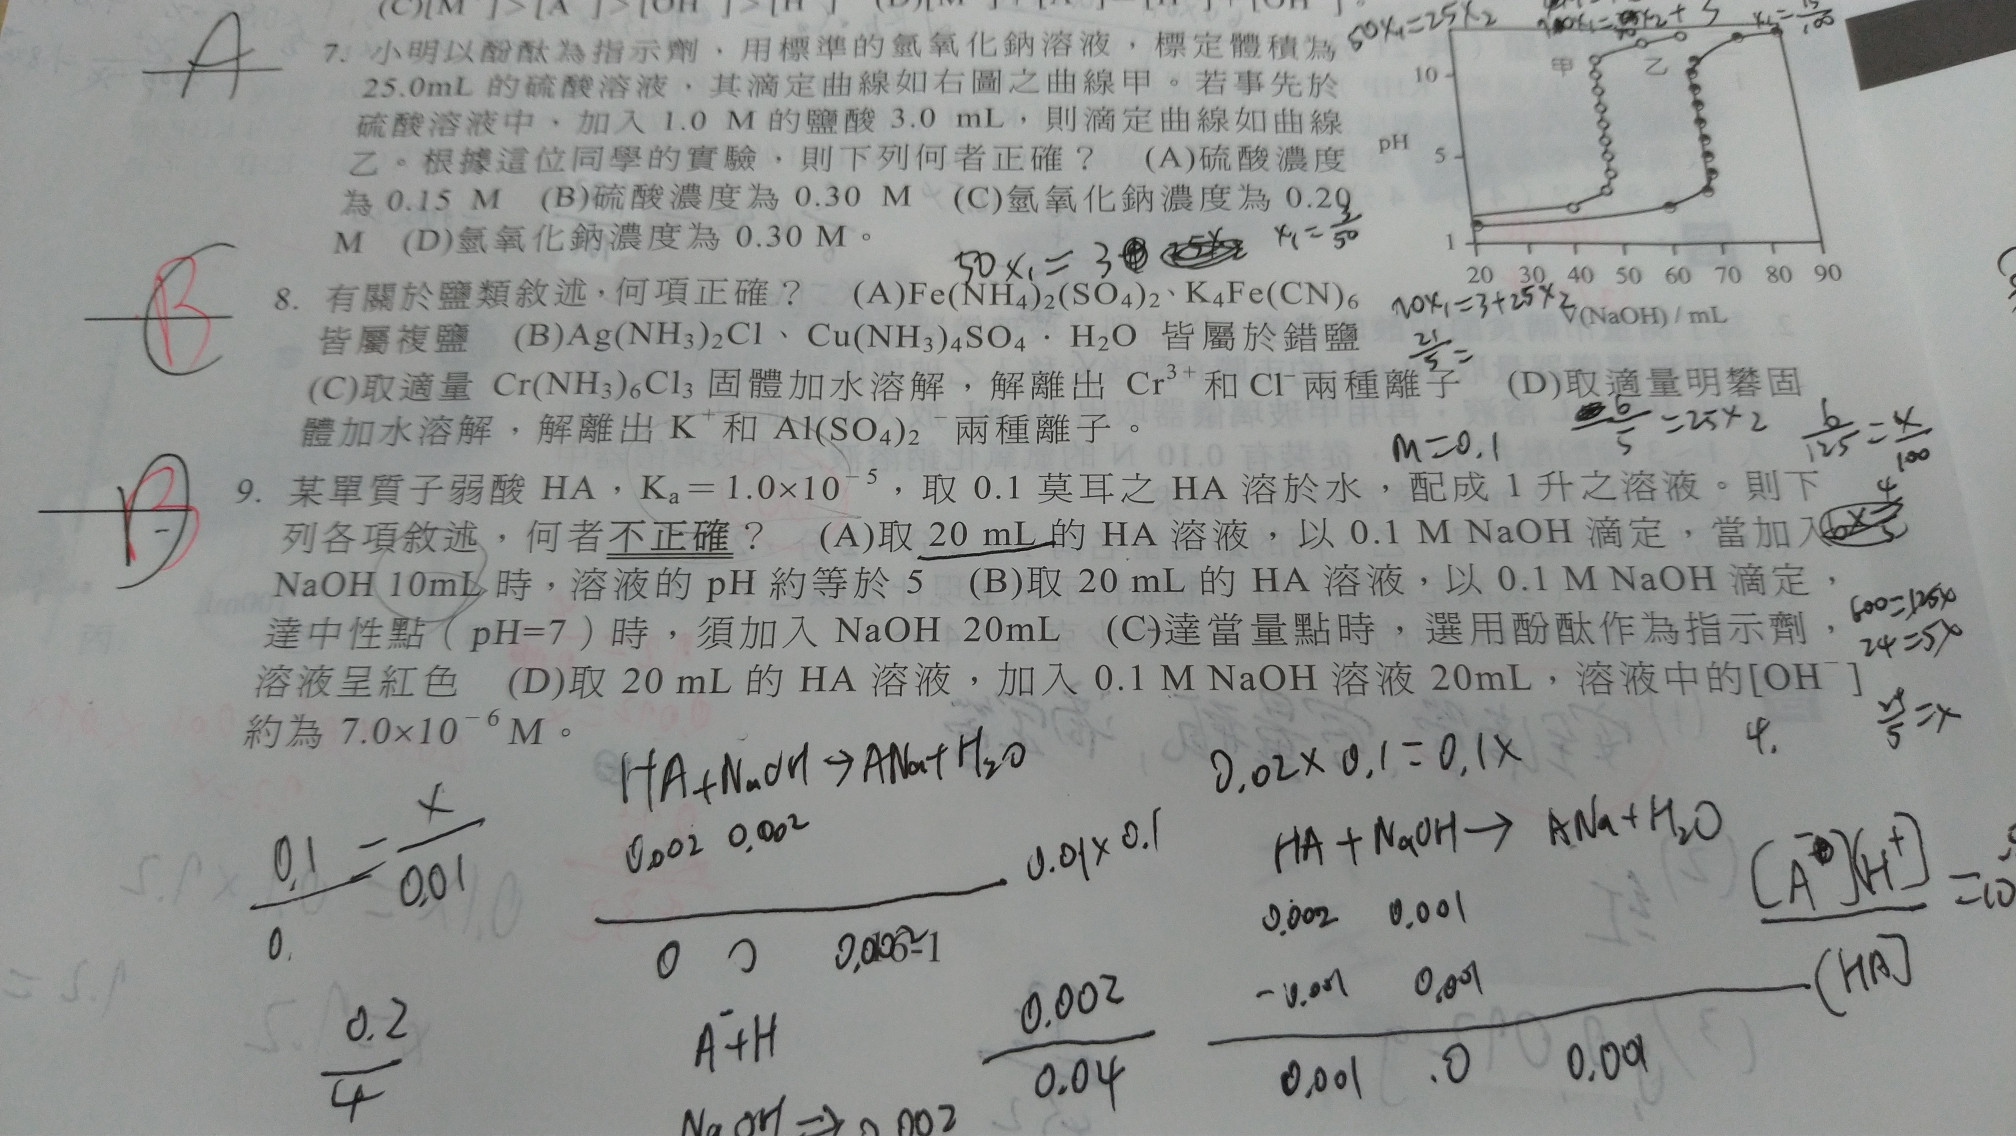 A
7. 小明以酚酞為指示劑、用標準的氫氧化鈉溶液,標定體積為
25.0mL 的硫酸溶液,其滴定曲線如右圖之曲線甲。若事先於
硫酸溶液中、加入 1.0 M 的鹽酸 3.0 mL,則滴定曲線如曲線
乙。根據這位同學的實驗,則下列何者正確? (A)硫酸濃度
為 0.15 M (B)硫酸濃度為 0.30 M (C)氫氧化鈉濃度為 0.20
M (D)氫氧化鈉濃度為 0.30 M。
50x₁=25x2
甲 乙
10
pH
5
1
20 30 40 50 60 70 80 90
V(NaOH) / mL
50x₁=3
x₁=3/50
B
8. 有關於鹽類敘述,何項正確? (A)Fe(NH4)2(SO4)2、K4Fe(CN)6
皆屬複鹽 (B)Ag(NH3)2Cl、Cu(NH3)4SO4.H2O 皆屬於錯鹽
(C)取適量 Cr(NH3)6Cl3 固體加水溶解,解離出 Cr³⁺和 Cl⁻兩種離子 (D)取適量明礬固
體加水溶解,解離出 K⁺和 Al(SO4)2⁻兩種離子。
70x₁=3+25x2
21/5=
M=0.1
6/5=25x2
6/125=x/100
B
9. 某單質子弱酸 HA,Ka=1.0×10⁻⁵,取 0.1 莫耳之 HA 溶於水,配成 1 升之溶液。則下
列各項敘述,何者不正確? (A)取 20 mL 的 HA 溶液,以 0.1 M NaOH 滴定,當加入
NaOH 10mL 時,溶液的 pH 約等於 5 (B)取 20 mL 的 HA 溶液,以 0.1 M NaOH 滴定,
達中性點(pH=7)時,須加入 NaOH 20mL (C)達當量點時,選用酚酞作為指示劑,
溶液呈紅色 (D)取 20 mL 的 HA 溶液,加入 0.1 M NaOH 溶液 20mL,溶液中的[OH⁻]
約為 7.0×10⁻⁶ M。
600=125x
24=5x
4.
HA+NaOH→ANa+H2O
0.002 0.002
0.01×0.1
0 0
A⁻+H
0.002/0.04
0.1/0. = x/0.01
0.2/4
0.02×0.1=0.1x
HA+NaOH→ANa+H2O
0.002 0.001
-0.001 0.001
0.001 0 0.001
[A⁻][H⁺]/[HA]